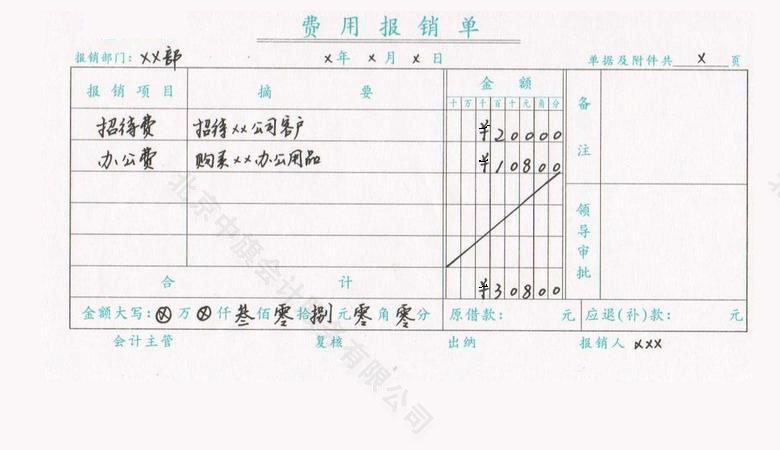 费用报销单
报销部门：××部 ×年 ×月 ×日 单据及附件共 × 页
报销项目 摘要 金额 备注
十 万 千 百 十 元 角 分
招待费 招待××公司客户 ¥20000
办公费 购买××办公用品 ¥10800
领导审批
合计 ¥30800
金额大写：⊗万⊗仟叁佰零拾捌元零角零分 原借款： 元 应退(补)款： 元
会计主管 复核 出纳 报销人 ×××
北京中旗会计服务有限公司